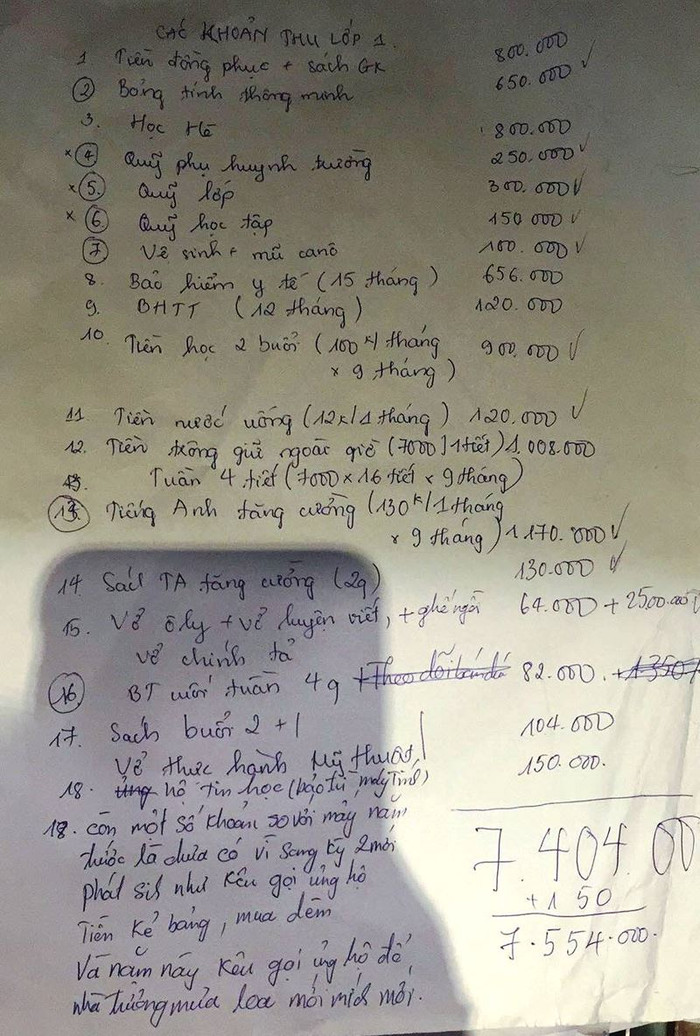 CÁC KHOẢN THU LỚP 1.
1 Tiền đồng phục + sách GK 800.000
2 Bảng tính thông minh 650.000 ✓
3. Học Hè 800.000
x 4 Quỹ phụ huynh trường 250.000 ✓
x 5. Quỹ lớp 300.000 ✓
x 6. Quỹ học tập 150 000 ✓
7 Vệ sinh + mũ canô 100.000 ✓
8. Bảo hiểm y tế (15 tháng) 656.000
9. BHTT (12 tháng) 120.000
10. Tiền học 2 buổi (100k/tháng 900.000 ✓
x 9 tháng)
11. Tiền nước uống (12k/1 tháng) 120.000 ✓
12. Tiền trông giữ ngoài giờ (7000]1tiết) 1.008.000
13. Tuần 4 tiết (7000 x 16 tiết x 9 tháng)
13. Tiếng Anh tăng cường (130k/1 tháng
x 9 tháng) 1 170.000 ✓
14. Sách TA tăng cường (2q) 130.000 ✓
15. Vở ôly + vở luyện viết, + ghế ngồi 64.000 + 2500.000
vở chính tả
16 BT cuối tuần 4q 82.000.
17. Sách buổi 2 + 1 104.000
Vở thực hành Mỹ thuật 150.000.
18. ủng hộ tin học (bảo trì máy tính)
18. còn một số khoản so với mấy năm
trước là chưa có vì sang kỳ 2 mới
phát sinh như kêu gọi ủng hộ
Tiền kẻ bảng, mua đêm
Và năm này kêu gọi ủng hộ để
nhà trường mua loa mới mích mới.
7.404.00
+ 150
7.554.000.